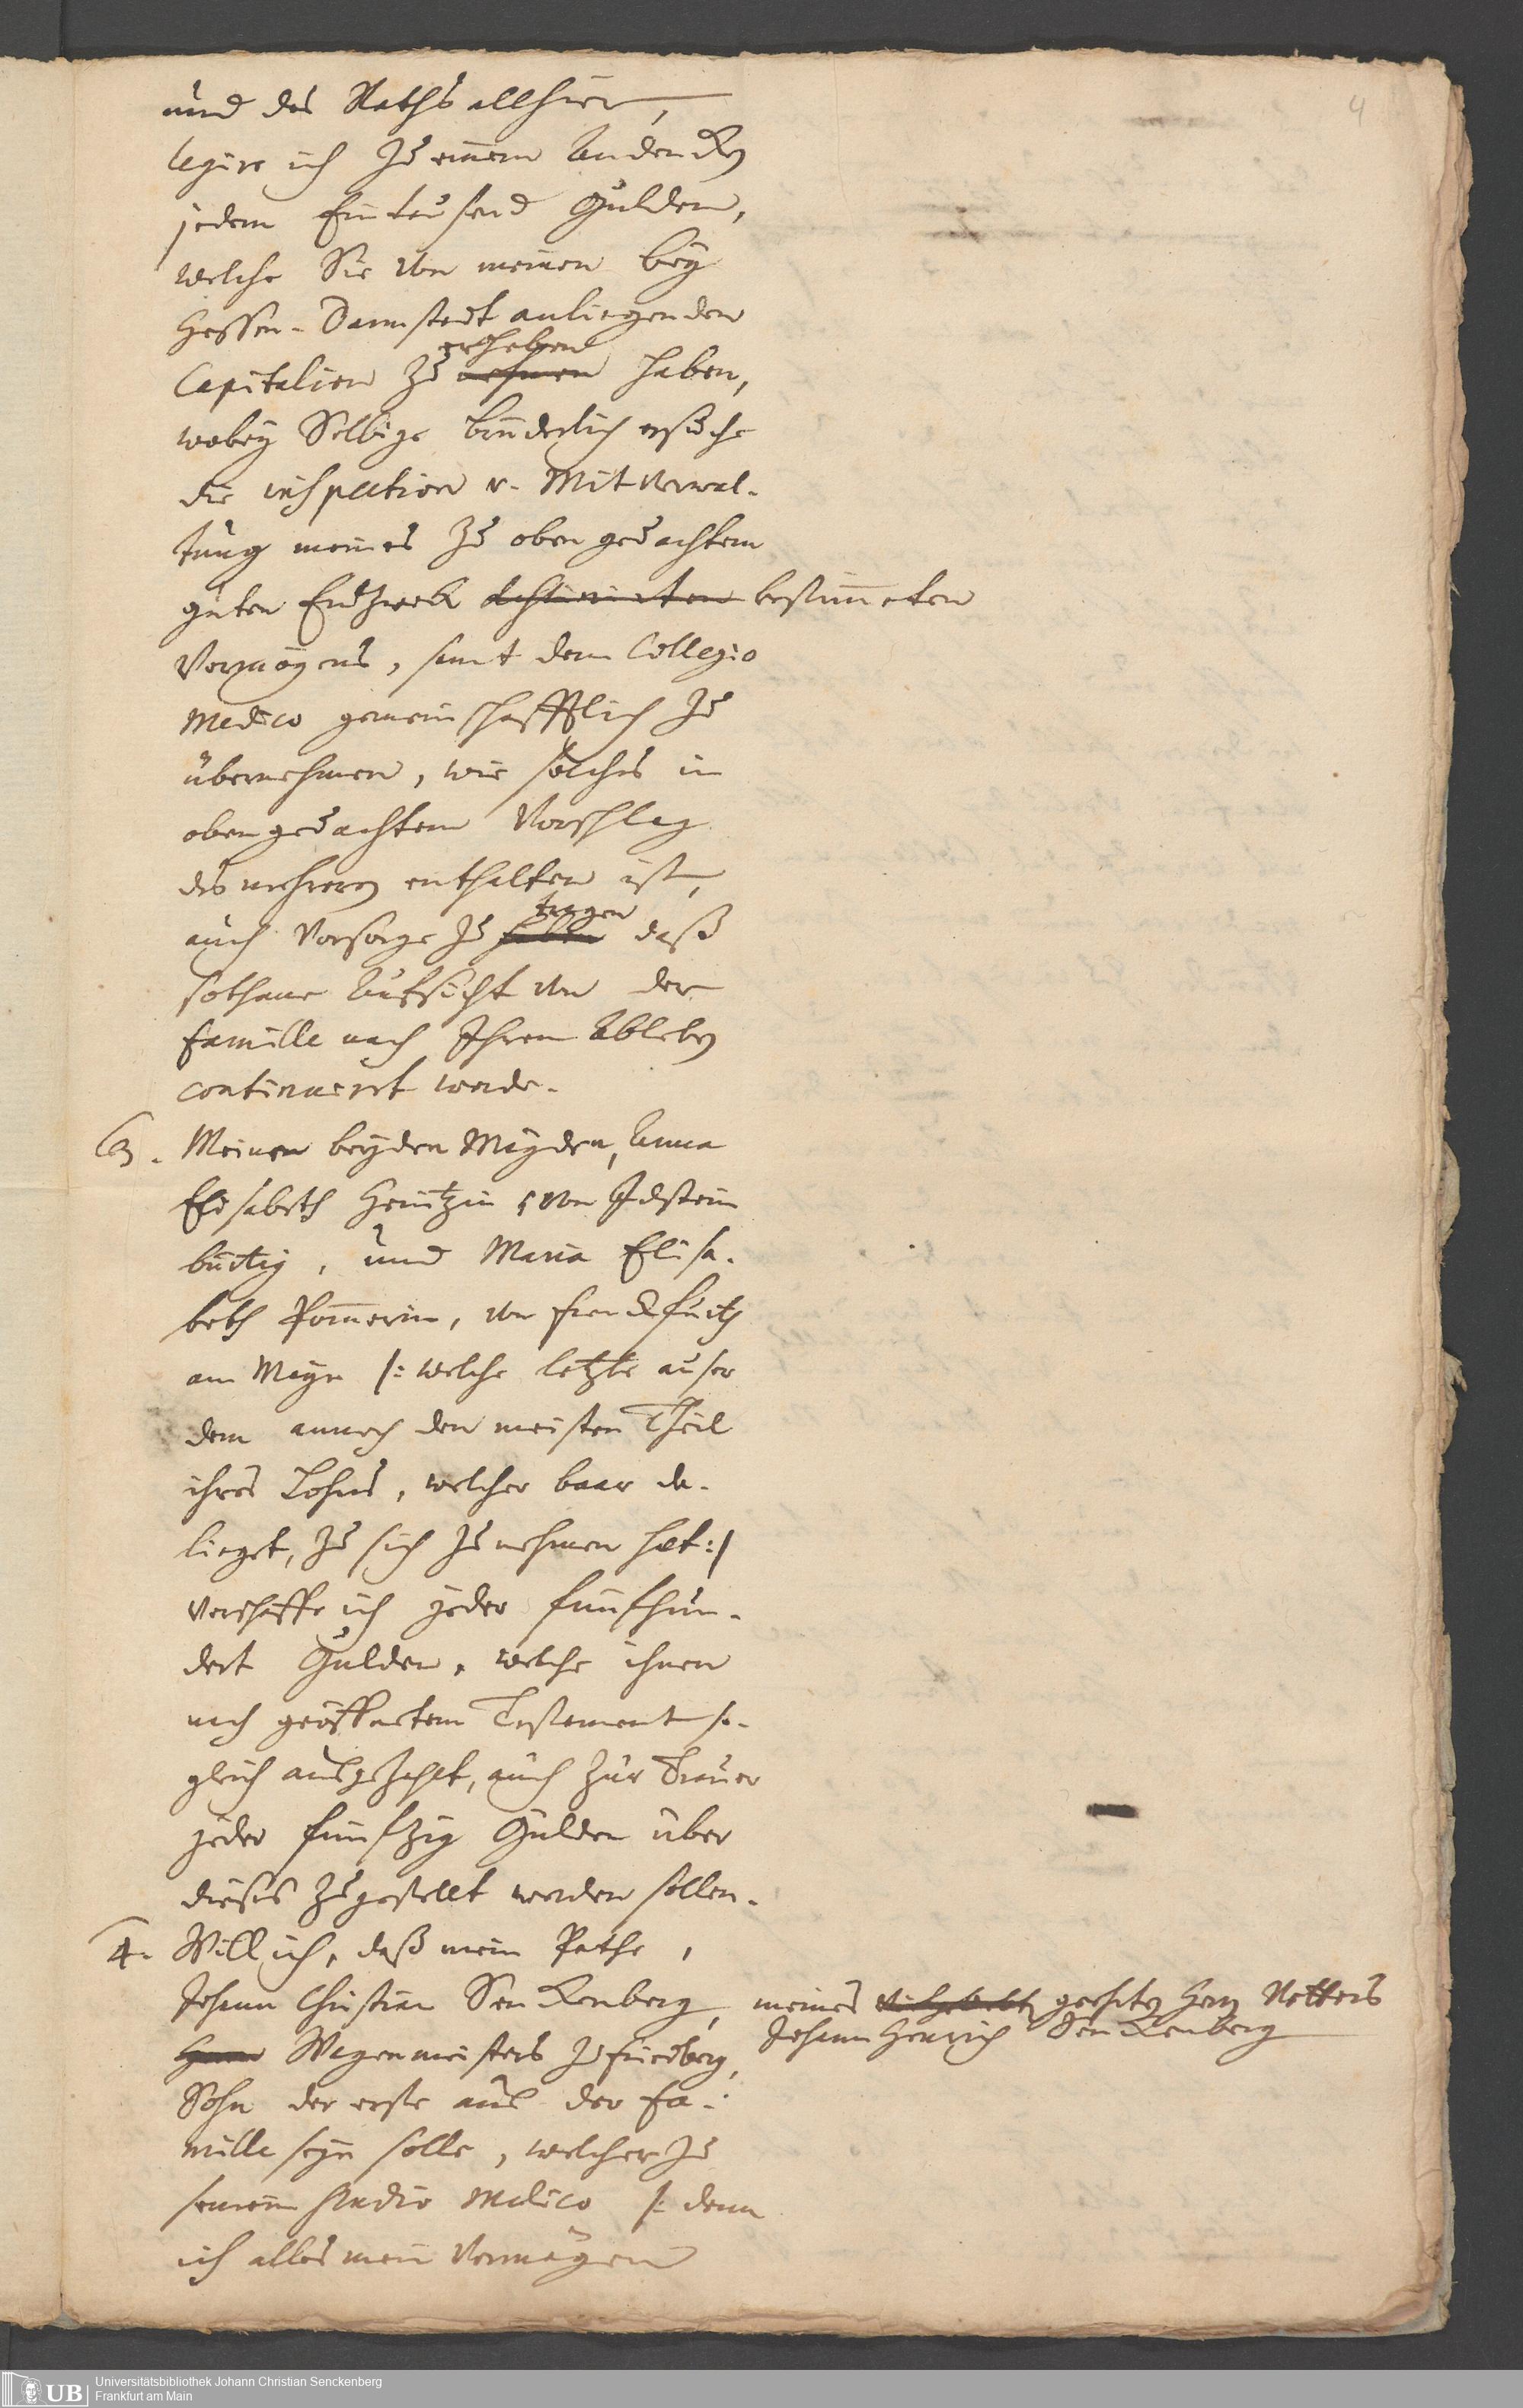 4
und des Raths allhier,
legire ich zu einem Andencken
jedem Eintausend Gulden,
welche Sie von meinen bey
Hessen-Darmstadt anliegenden
erheben
Capitalien zu nehmen haben,
wobey Selbige brüderlich ersuche
die inspection u. Mitverwal-
tung meines zu oben gedachtem
guten Endzweck destinirten bestimmeten
Vermögens, samt dem Collegio
Medico gemeinschafftlich zu
übernehmen, wie solches in
oben gedachtem Vorschlag
des mehreren enthalten ist,
tragen
auch Vorsorge zu haben daß
sothane Aufsicht von der
Famille nach Ihrem Ableben
continuirt werde.
3. Meinen beyden Mägden, Anna
Elisabeth Heintzin, von Idstein
bürtig, und Maria Elisa-
beth Pommerin, von Franckfurth
am Mayn /: welche letzte auser
dem annoch den meisten Theil
ihres Lohns, welcher baar da-
lieget, zu sich zu nehmen hat :/
verschaffe ich jeder fünfhun-
dert Gulden, welche ihnen
nach geöffnetem Testament so-
gleich ausgezahlt, auch zur Trauer
jeder fünfzig Gulden über
dieses zugestellt werden sollen.
4. Will ich, daß mein Pathe,
Johann Christian Senckenberg, meines vielgeliebten geehrten Herrn Vetters
Johann Henrich Senckenberg
Herrn Wagenmeisters zu Friedberg,
Sohn der erste aus der Fa-
mille seyn solle, welcher zu
seinem Studio Medico /: denn
ich alles mein Vermögen
UB Universitätsbibliothek Johann Christian Senckenberg
Frankfurt am Main